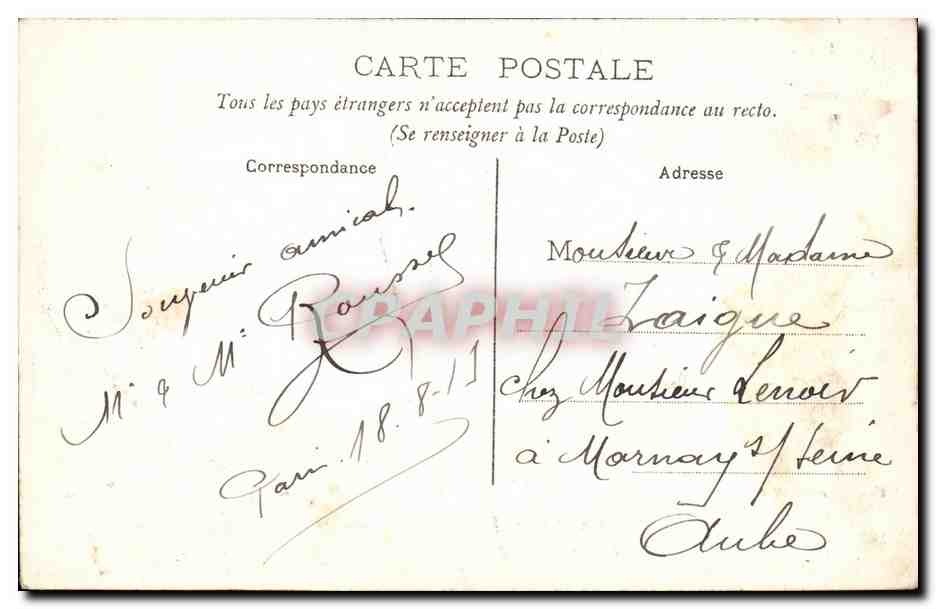 CARTE POSTALE
Tous les pays étrangers n'acceptent pas la correspondance au recto.
(Se renseigner à la Poste)
Correspondance
Souvenir amical.
Mr & Me Roussel
Paris. 18.8-11
CPAPHIL
Adresse
Monsieur & Madame
Zaigue
chez Monsieur Lenoir
à Marnay s/ Seine
Aube